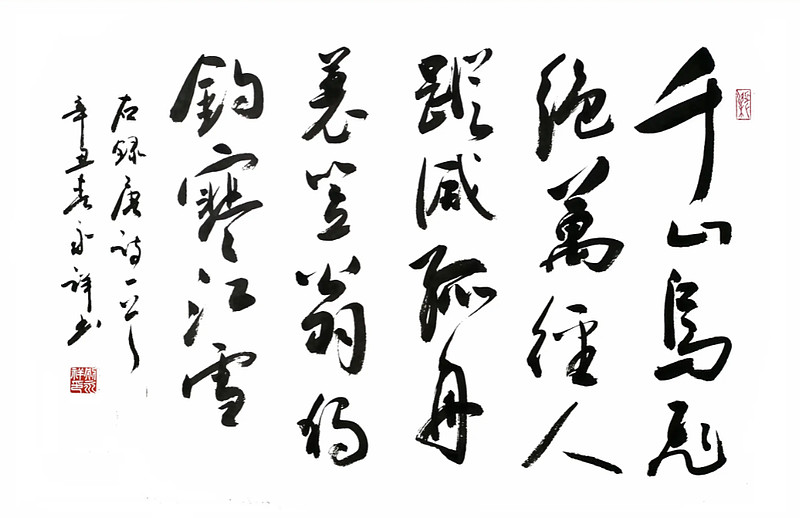 千山鳥飛
絕萬徑人
蹤滅孤舟
蓑笠翁獨
釣寒江雪
右錄唐詩一首
辛丑春永祥書